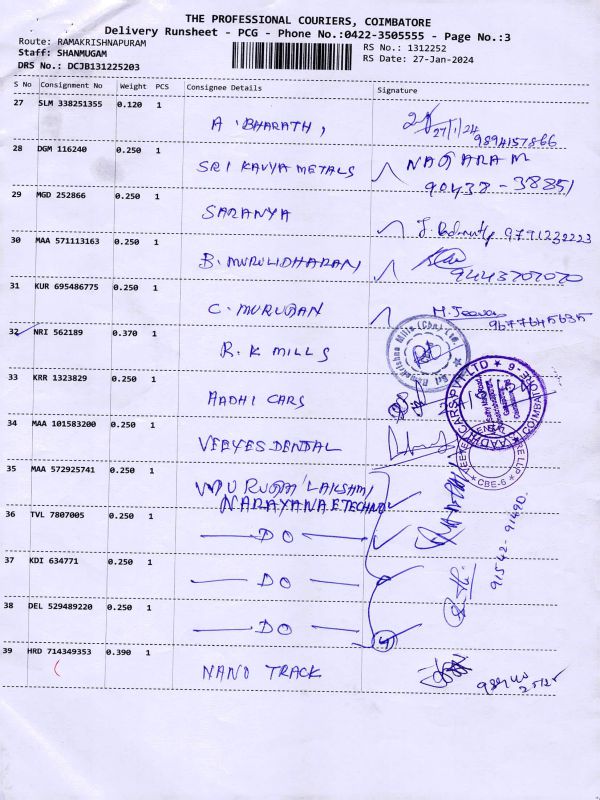 THE PROFESSIONAL COURIERS, COIMBATORE
Delivery Runsheet - PCG - Phone No.:0422-3505555 - Page No.:3
Route: RAMAKRISHNAPURAM
Staff: SHANMUGAM
DRS No.: DCJB131225203
RS No.: 1312252
RS Date: 27-Jan-2024
S No Consignment No Weight PCS Consignee Details Signature
27 SLM 338251355 0.120 1
A. BHARATH, 27/1/24
9894157866
28 DGM 116240 0.250 1
SRI KAVYA METALS NAGARAM
90438-38851
29 MGD 252866 0.250 1
SARANYA 9791232223
30 MAA 571113163 0.250 1
B. MURULIDHARAN
9443707070
31 KUR 695486775 0.250 1
C. MURUGAN M. Jeeva
9677645635
32 NRI 562189 0.370 1
R. K MILLS
33 KRR 1323829 0.250 1
AADHI CARS
34 MAA 101583200 0.250 1
VEEYES DENTAL
CBE-6
35 MAA 572925741 0.250 1
MURUGA/LAKSHMI
NARAYANA ETECHNO
36 TVL 7807005 0.250 1
DO
91542-91490.
37 KDI 634771 0.250 1
DO
38 DEL 529489220 0.250 1
DO
4
39 HRD 714349353 0.390 1
NANO TRACK